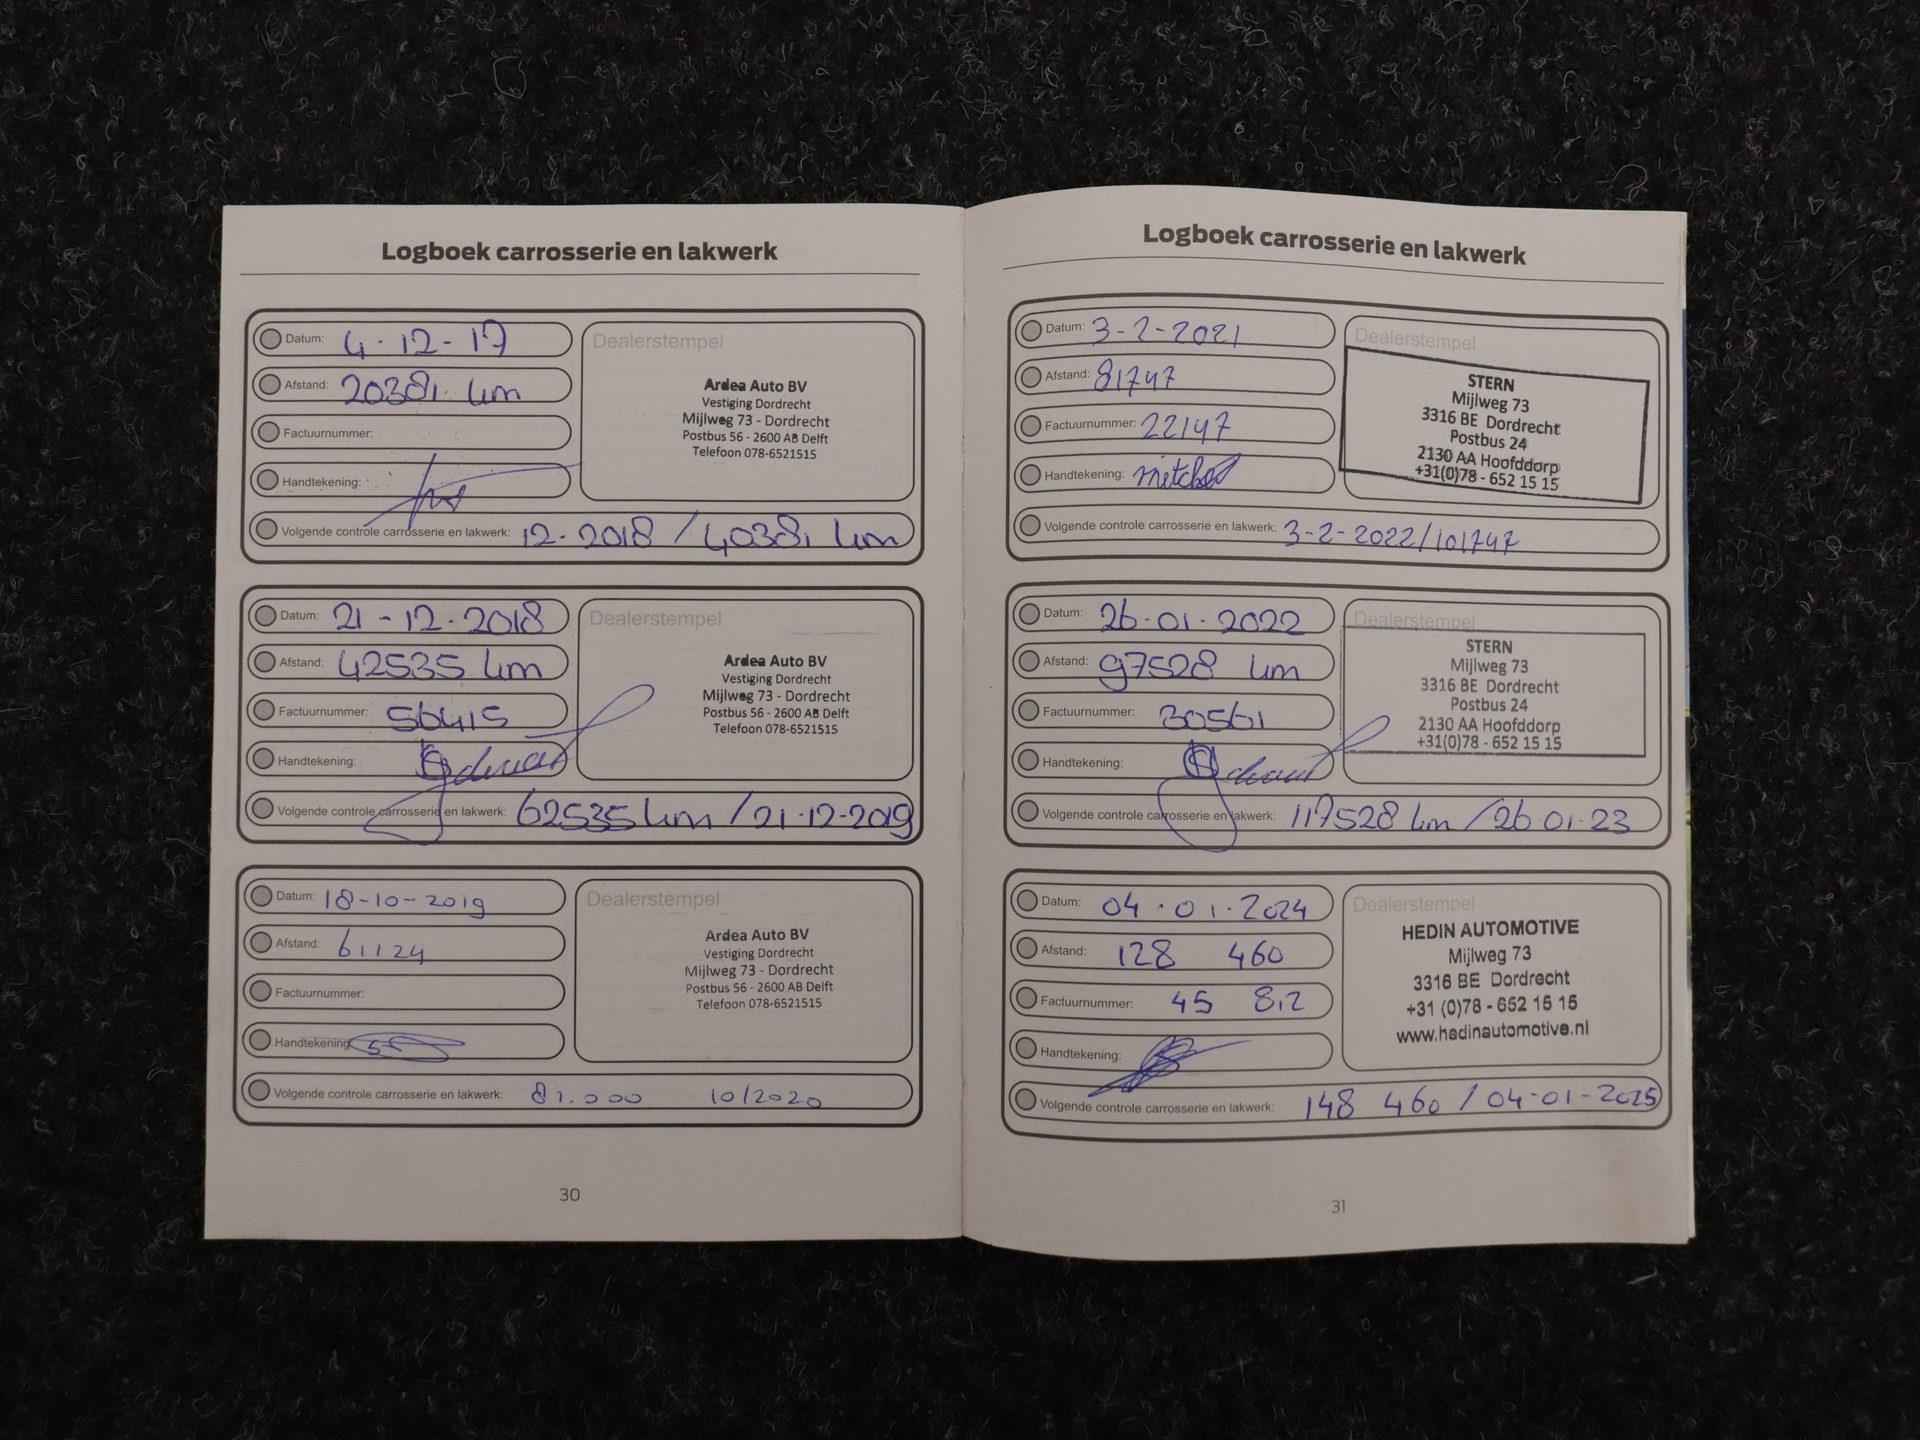 Logboek carrosserie en lakwerk
Datum: 4-12-17
Afstand: 20381 km
Factuurnummer:
Handtekening:
Volgende controle carrosserie en lakwerk: 12-2018 / 40381 km
Dealerstempel
Ardea Auto BV
Vestiging Dordrecht
Mijlweg 73 - Dordrecht
Postbus 56 - 2600 AB Delft
Telefoon 078-6521515
Datum: 21-12-2018
Afstand: 42535 km
Factuurnummer: 56415
Handtekening:
Volgende controle carrosserie en lakwerk: 62535 km / 21-12-2019
Dealerstempel
Ardea Auto BV
Vestiging Dordrecht
Mijlweg 73 - Dordrecht
Postbus 56 - 2600 AB Delft
Telefoon 078-6521515
Datum: 18-10-2019
Afstand: 61124
Factuurnummer:
Handtekening
Volgende controle carrosserie en lakwerk: 81.000 10/2020
Dealerstempel
Ardea Auto BV
Vestiging Dordrecht
Mijlweg 73 - Dordrecht
Postbus 56 - 2600 AB Delft
Telefoon 078-6521515
30
Logboek carrosserie en lakwerk
Datum: 3-2-2021
Afstand: 81747
Factuurnummer: 22147
Handtekening:
Volgende controle carrosserie en lakwerk: 3-2-2022/101747
Dealerstempel
STERN
Mijlweg 73
3316 BE Dordrecht
Postbus 24
2130 AA Hoofddorp
+31(0)78 - 652 15 15
Datum: 26-01-2022
Afstand: 97528 km
Factuurnummer: 30561
Handtekening:
Volgende controle carrosserie en lakwerk: 117528 km / 26-01-23
Dealerstempel
STERN
Mijlweg 73
3316 BE Dordrecht
Postbus 24
2130 AA Hoofddorp
+31(0)78 - 652 15 15
Datum: 04-01-2024
Afstand: 128 460
Factuurnummer: 45 812
Handtekening:
Volgende controle carrosserie en lakwerk: 148 460 / 04-01-2025
Dealerstempel
HEDIN AUTOMOTIVE
Mijlweg 73
3316 BE Dordrecht
+31 (0)78 - 652 15 15
www.hedinautomotive.nl
31